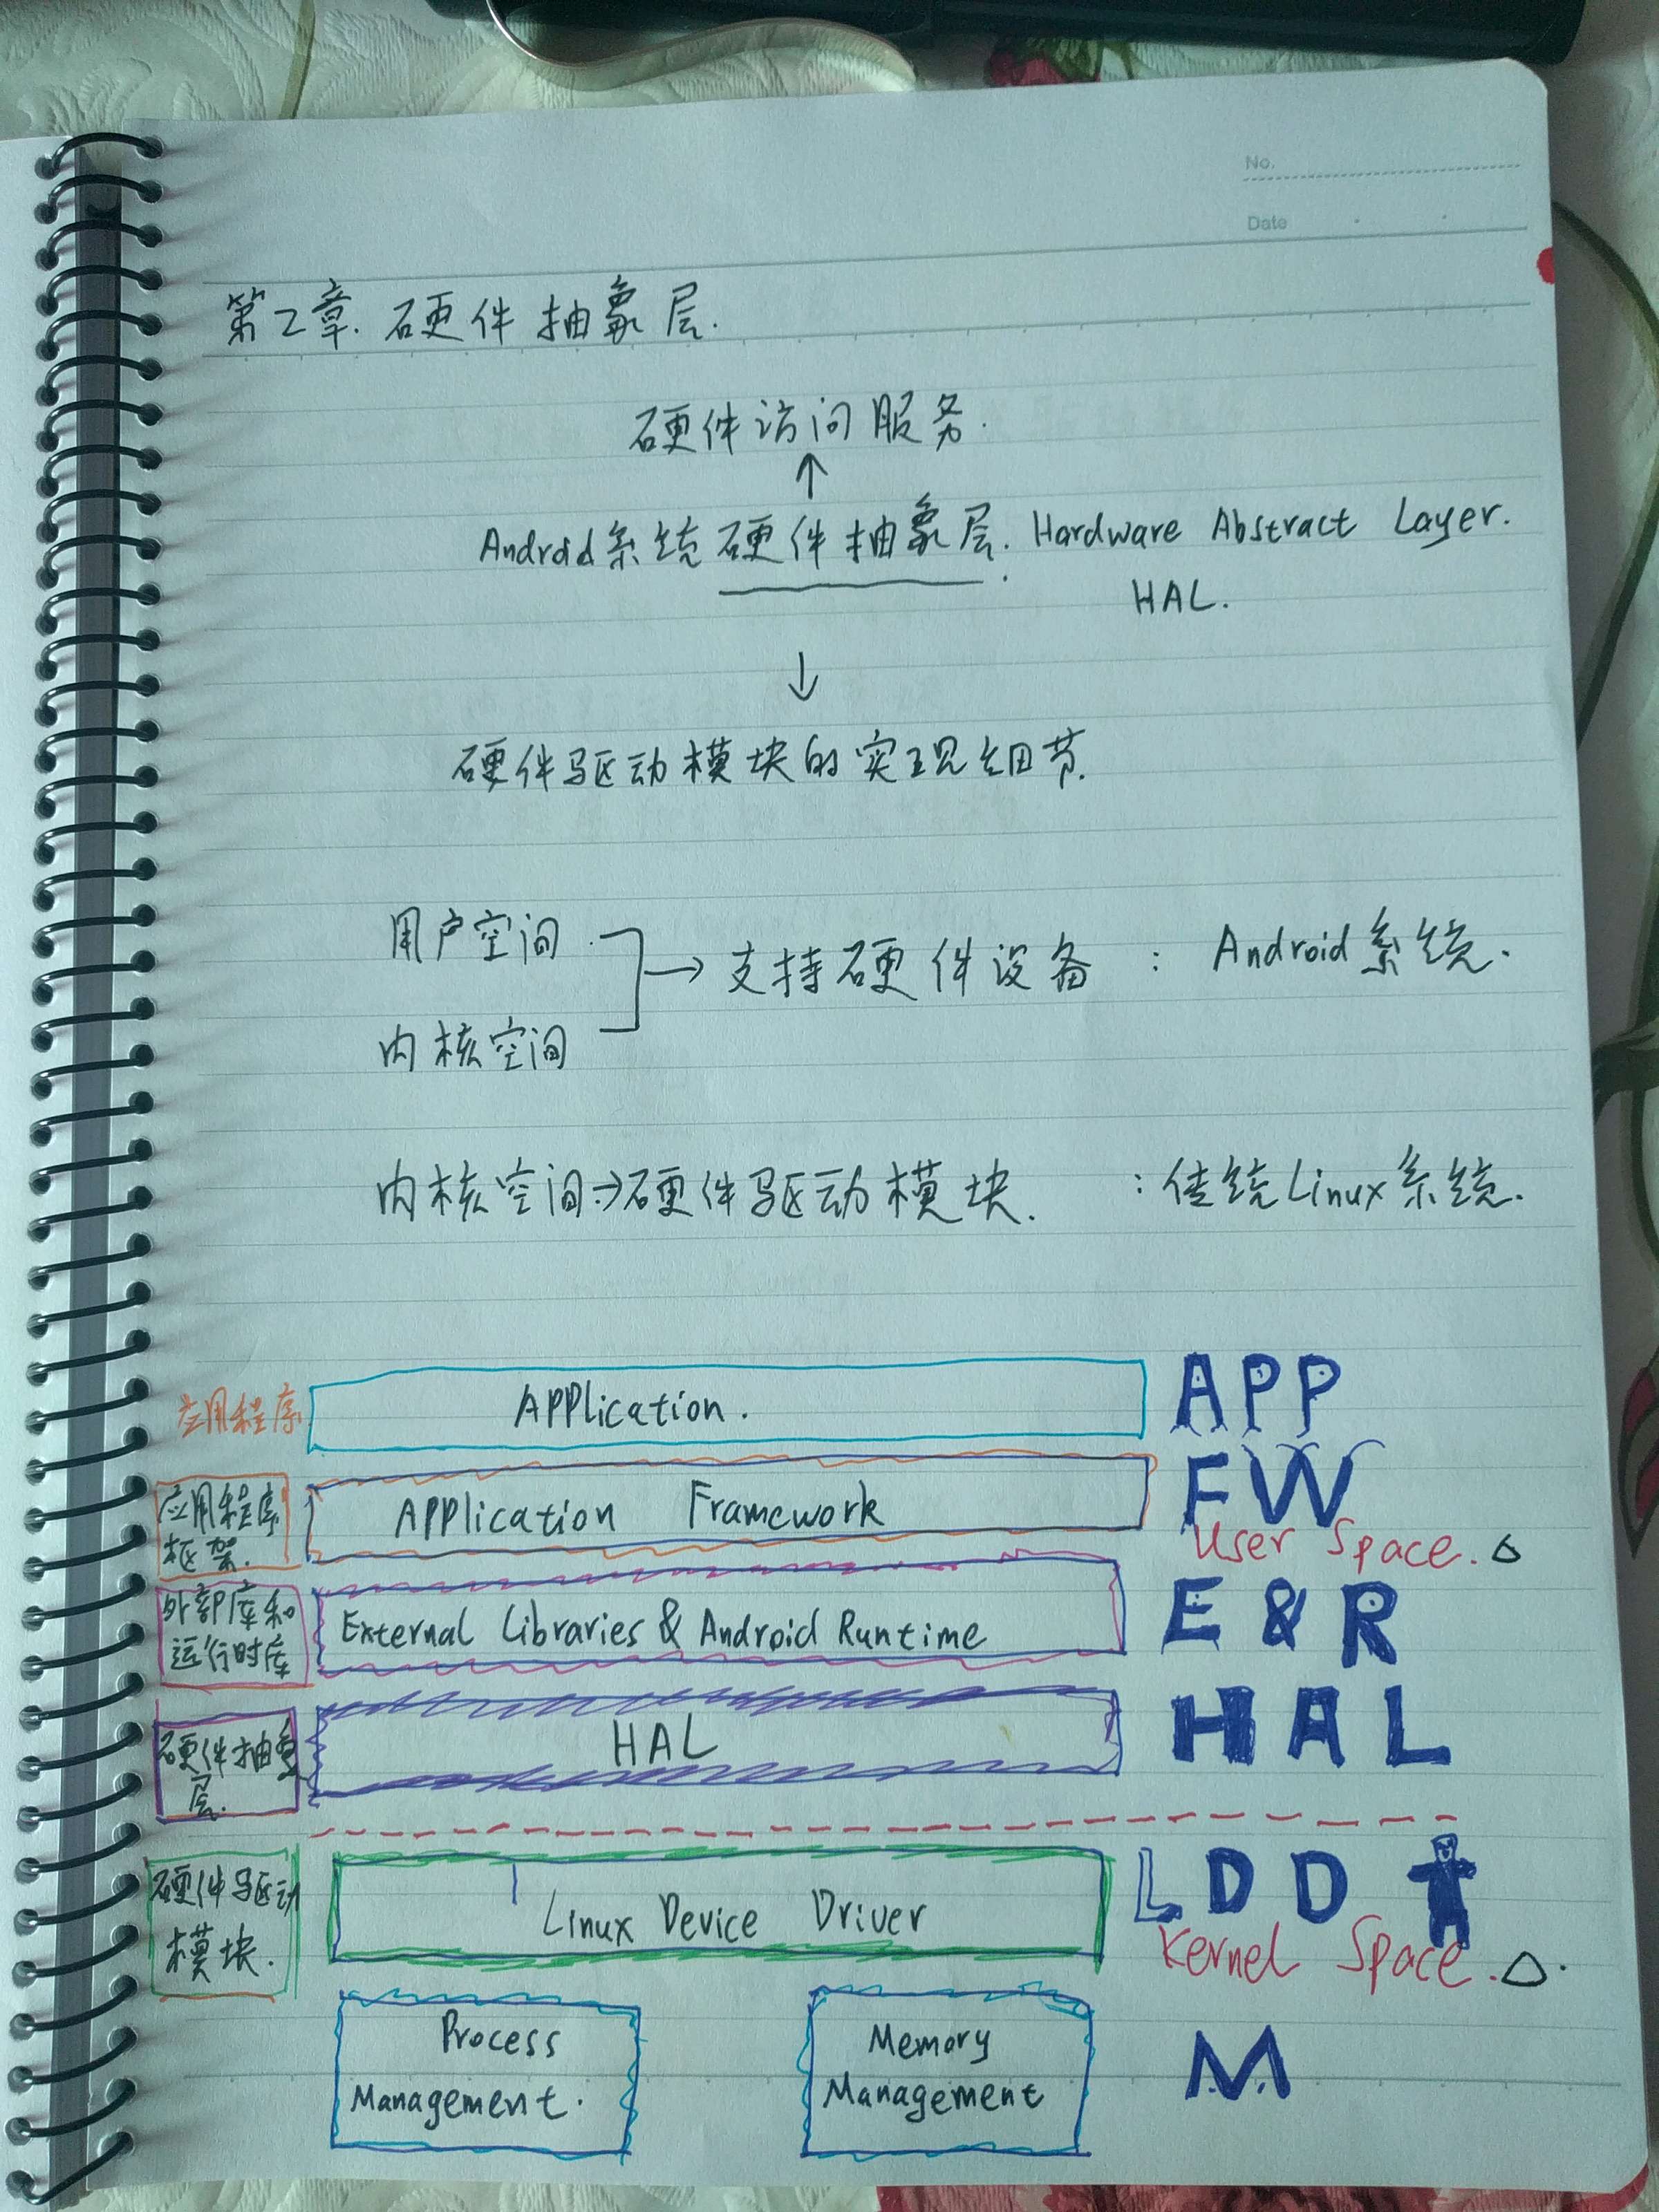 No.
Date
第2章. 硬件抽象层.
硬件访问服务.
↑
Android系统硬件抽象层. Hardware Abstract Layer.
HAL.
↓
硬件驱动模块的实现细节.
用户空间
→ 支持硬件设备 : Android系统.
内核空间
内核空间→硬件驱动模块. : 传统Linux系统.
应用程序 Application. APP
应用程序 Application Framework FW
框架.
User Space.
外部库和 External Libraries & Android Runtime E & R
运行时库
硬件抽象 HAL HAL
层.
硬件驱动 Linux Device Driver LDD
模块.
Kernel Space.
Process Memory M
Management. Management